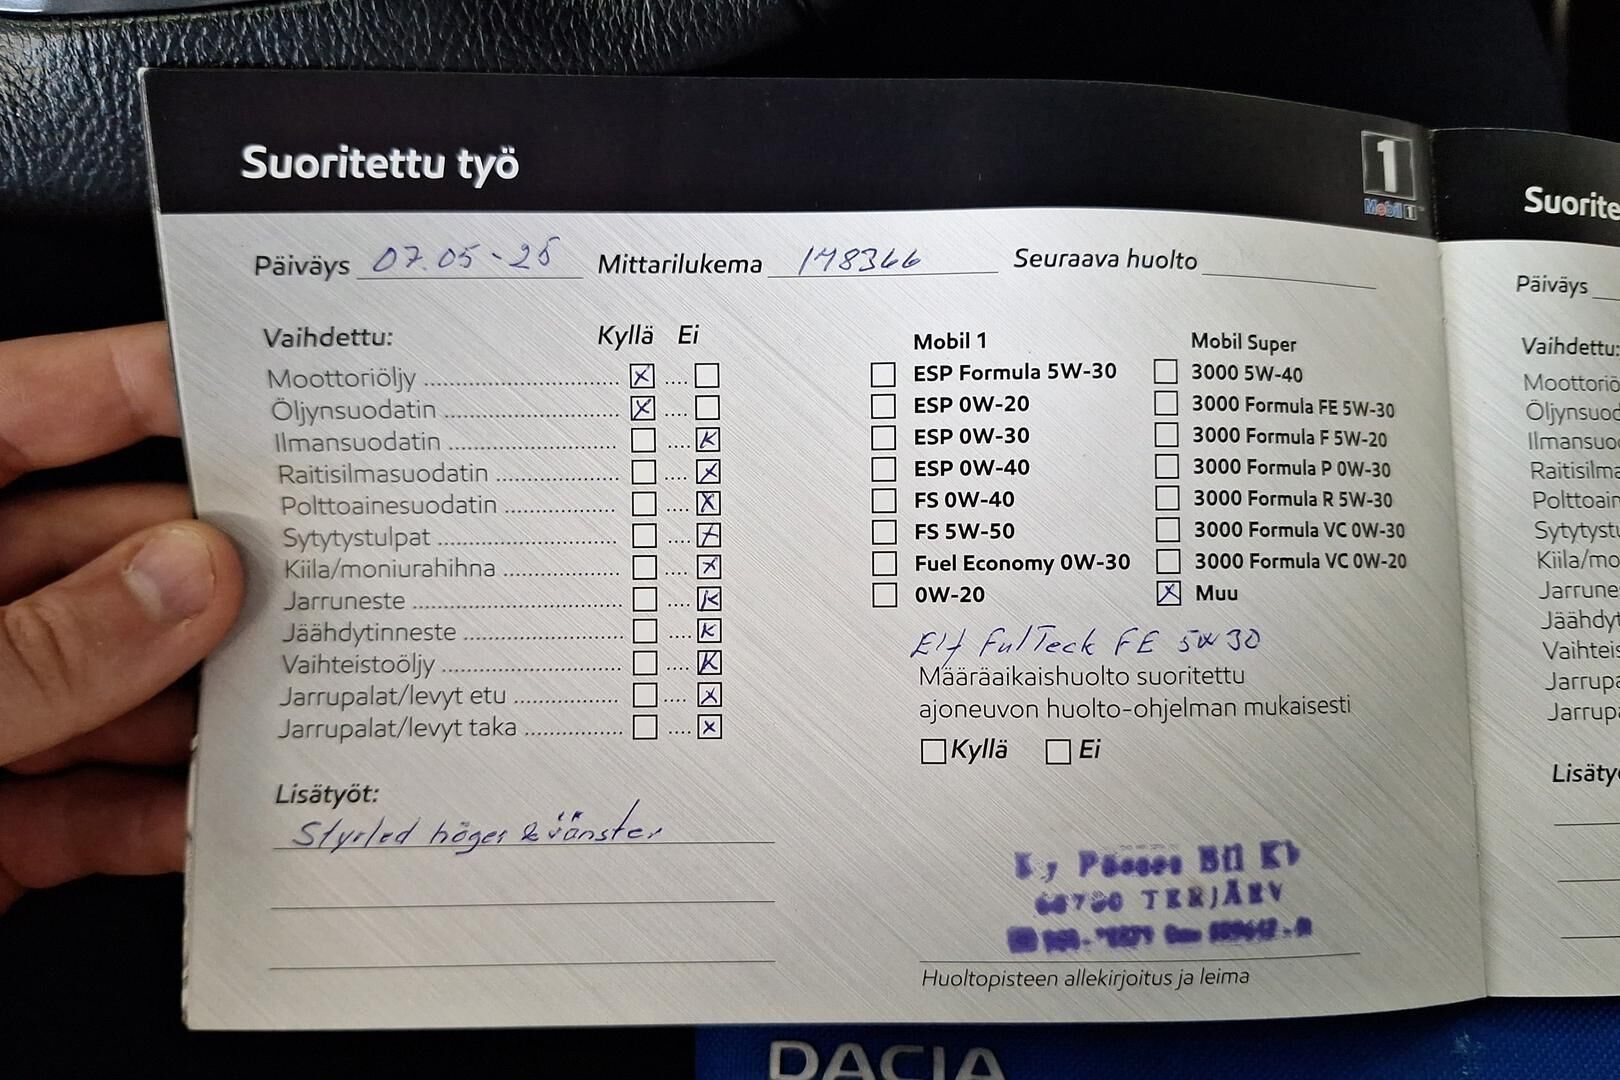 Suoritettu työ
1
Mobil 1
Päiväys 07.05-25 Mittarilukema 148366 Seuraava huolto
Vaihdettu: Kyllä Ei
Moottoriöljy
Öljynsuodatin
Ilmansuodatin
Raitisilmasuodatin
Polttoainesuodatin
Sytytystulpat
Kiila/moniurahihna
Jarruneste
Jäähdytinneste
Vaihteistoöljy
Jarrupalat/levyt etu
Jarrupalat/levyt taka
Lisätyöt:
Styrled höger & vänster
Mobil 1
ESP Formula 5W-30
ESP 0W-20
ESP 0W-30
ESP 0W-40
FS 0W-40
FS 5W-50
Fuel Economy 0W-30
0W-20
Mobil Super
3000 5W-40
3000 Formula FE 5W-30
3000 Formula F 5W-20
3000 Formula P 0W-30
3000 Formula R 5W-30
3000 Formula VC 0W-30
3000 Formula VC 0W-20
Muu
Elf FulTeck FE 5W30
Määräaikaishuolto suoritettu
ajoneuvon huolto-ohjelman mukaisesti
Kyllä Ei
Bil Kb
TERJÄRV
Huoltopisteen allekirjoitus ja leima
Päiväys
Vaihdettu:
Lisätyö
DACIA